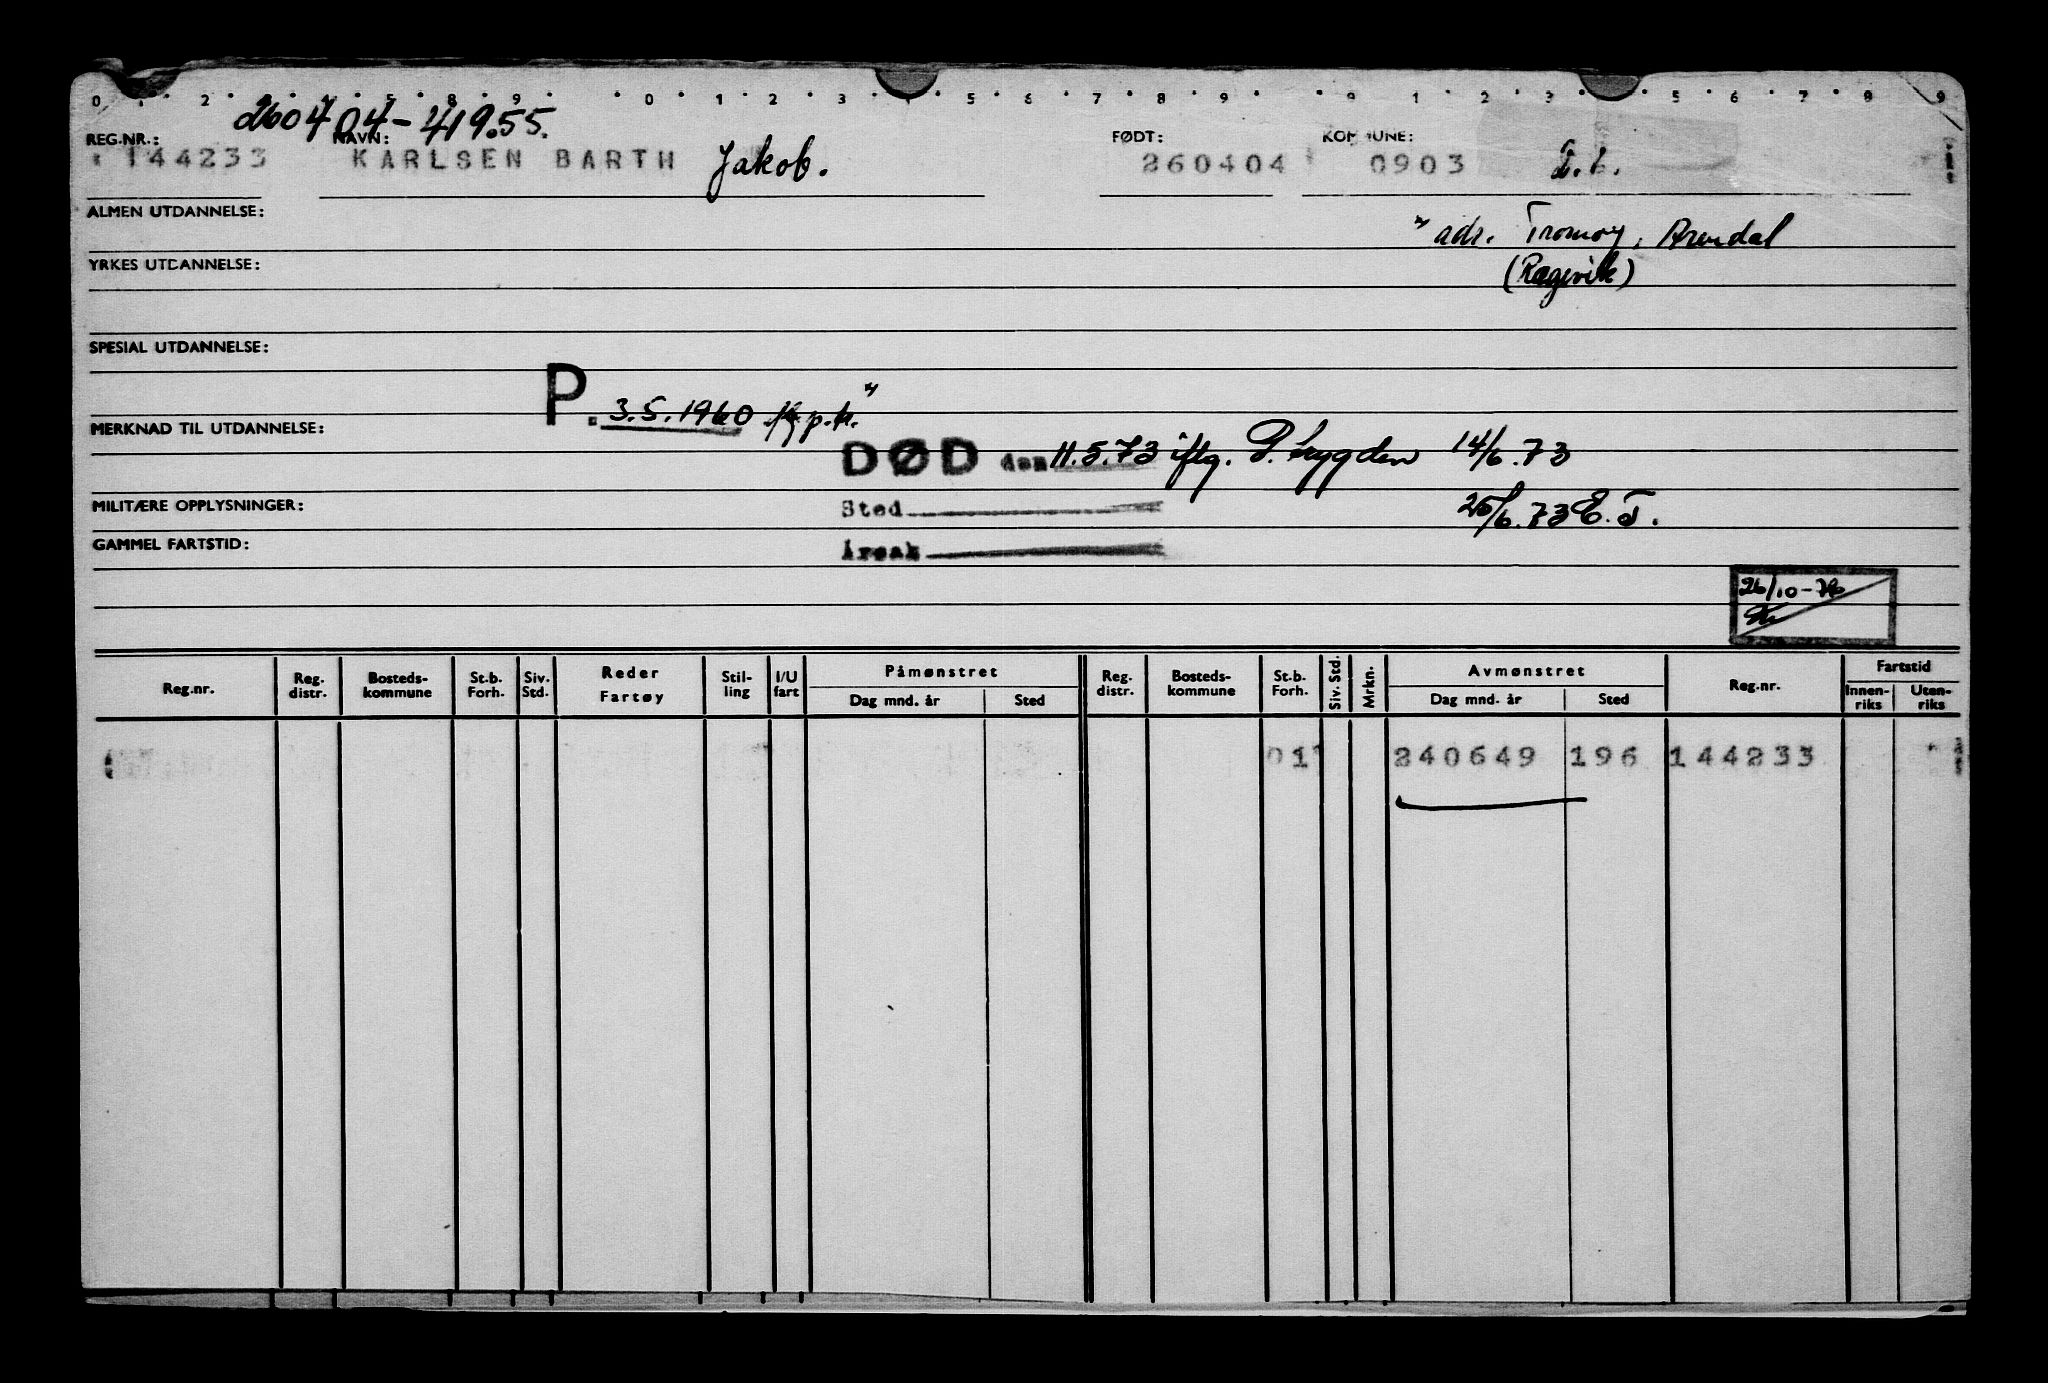 0 1 2 4 5 8 9 0 1 2 3 4 5 6 7 8 9 9 1 2 3 5 6 7 8 9
260404-41955.
REG.NR.: NAVN: FØDT: KOMMUNE:
144233 KARLSEN BARTH Jakob. 260404 0903
ALMEN UTDANNELSE:
" adr. Tromøy, Arendal
YRKES UTDANNELSE:
(Rægevik)
SPESIAL UTDANNELSE:
P. 3.5.1960 "
MERKNAD TIL UTDANNELSE:
DØD den 11.5.73 iflg. P. Trygden 14/6.73
MILITÆRE OPPLYSNINGER: Sted 25/6.73 E.T.
GAMMEL FARTSTID: Årsak
26/10-76
Reg.nr. Reg. distr. Bosteds-kommune St.b. Forh. Siv. Std. Reder Fartøy Stil-ling I/U fart Påmønstret Dag mnd. år Sted Reg. distr. Bosteds-kommune St.b. Forh. Siv. Std. Mrkn. Avmønstret Dag mnd. år Sted Reg.nr. Fartstid Innen-riks Uten-riks
01 240649 196 144233